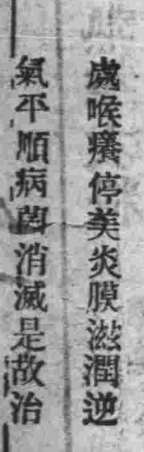 處喉癢停美炎膜滋潤逆
氣平順病菌消滅是故治